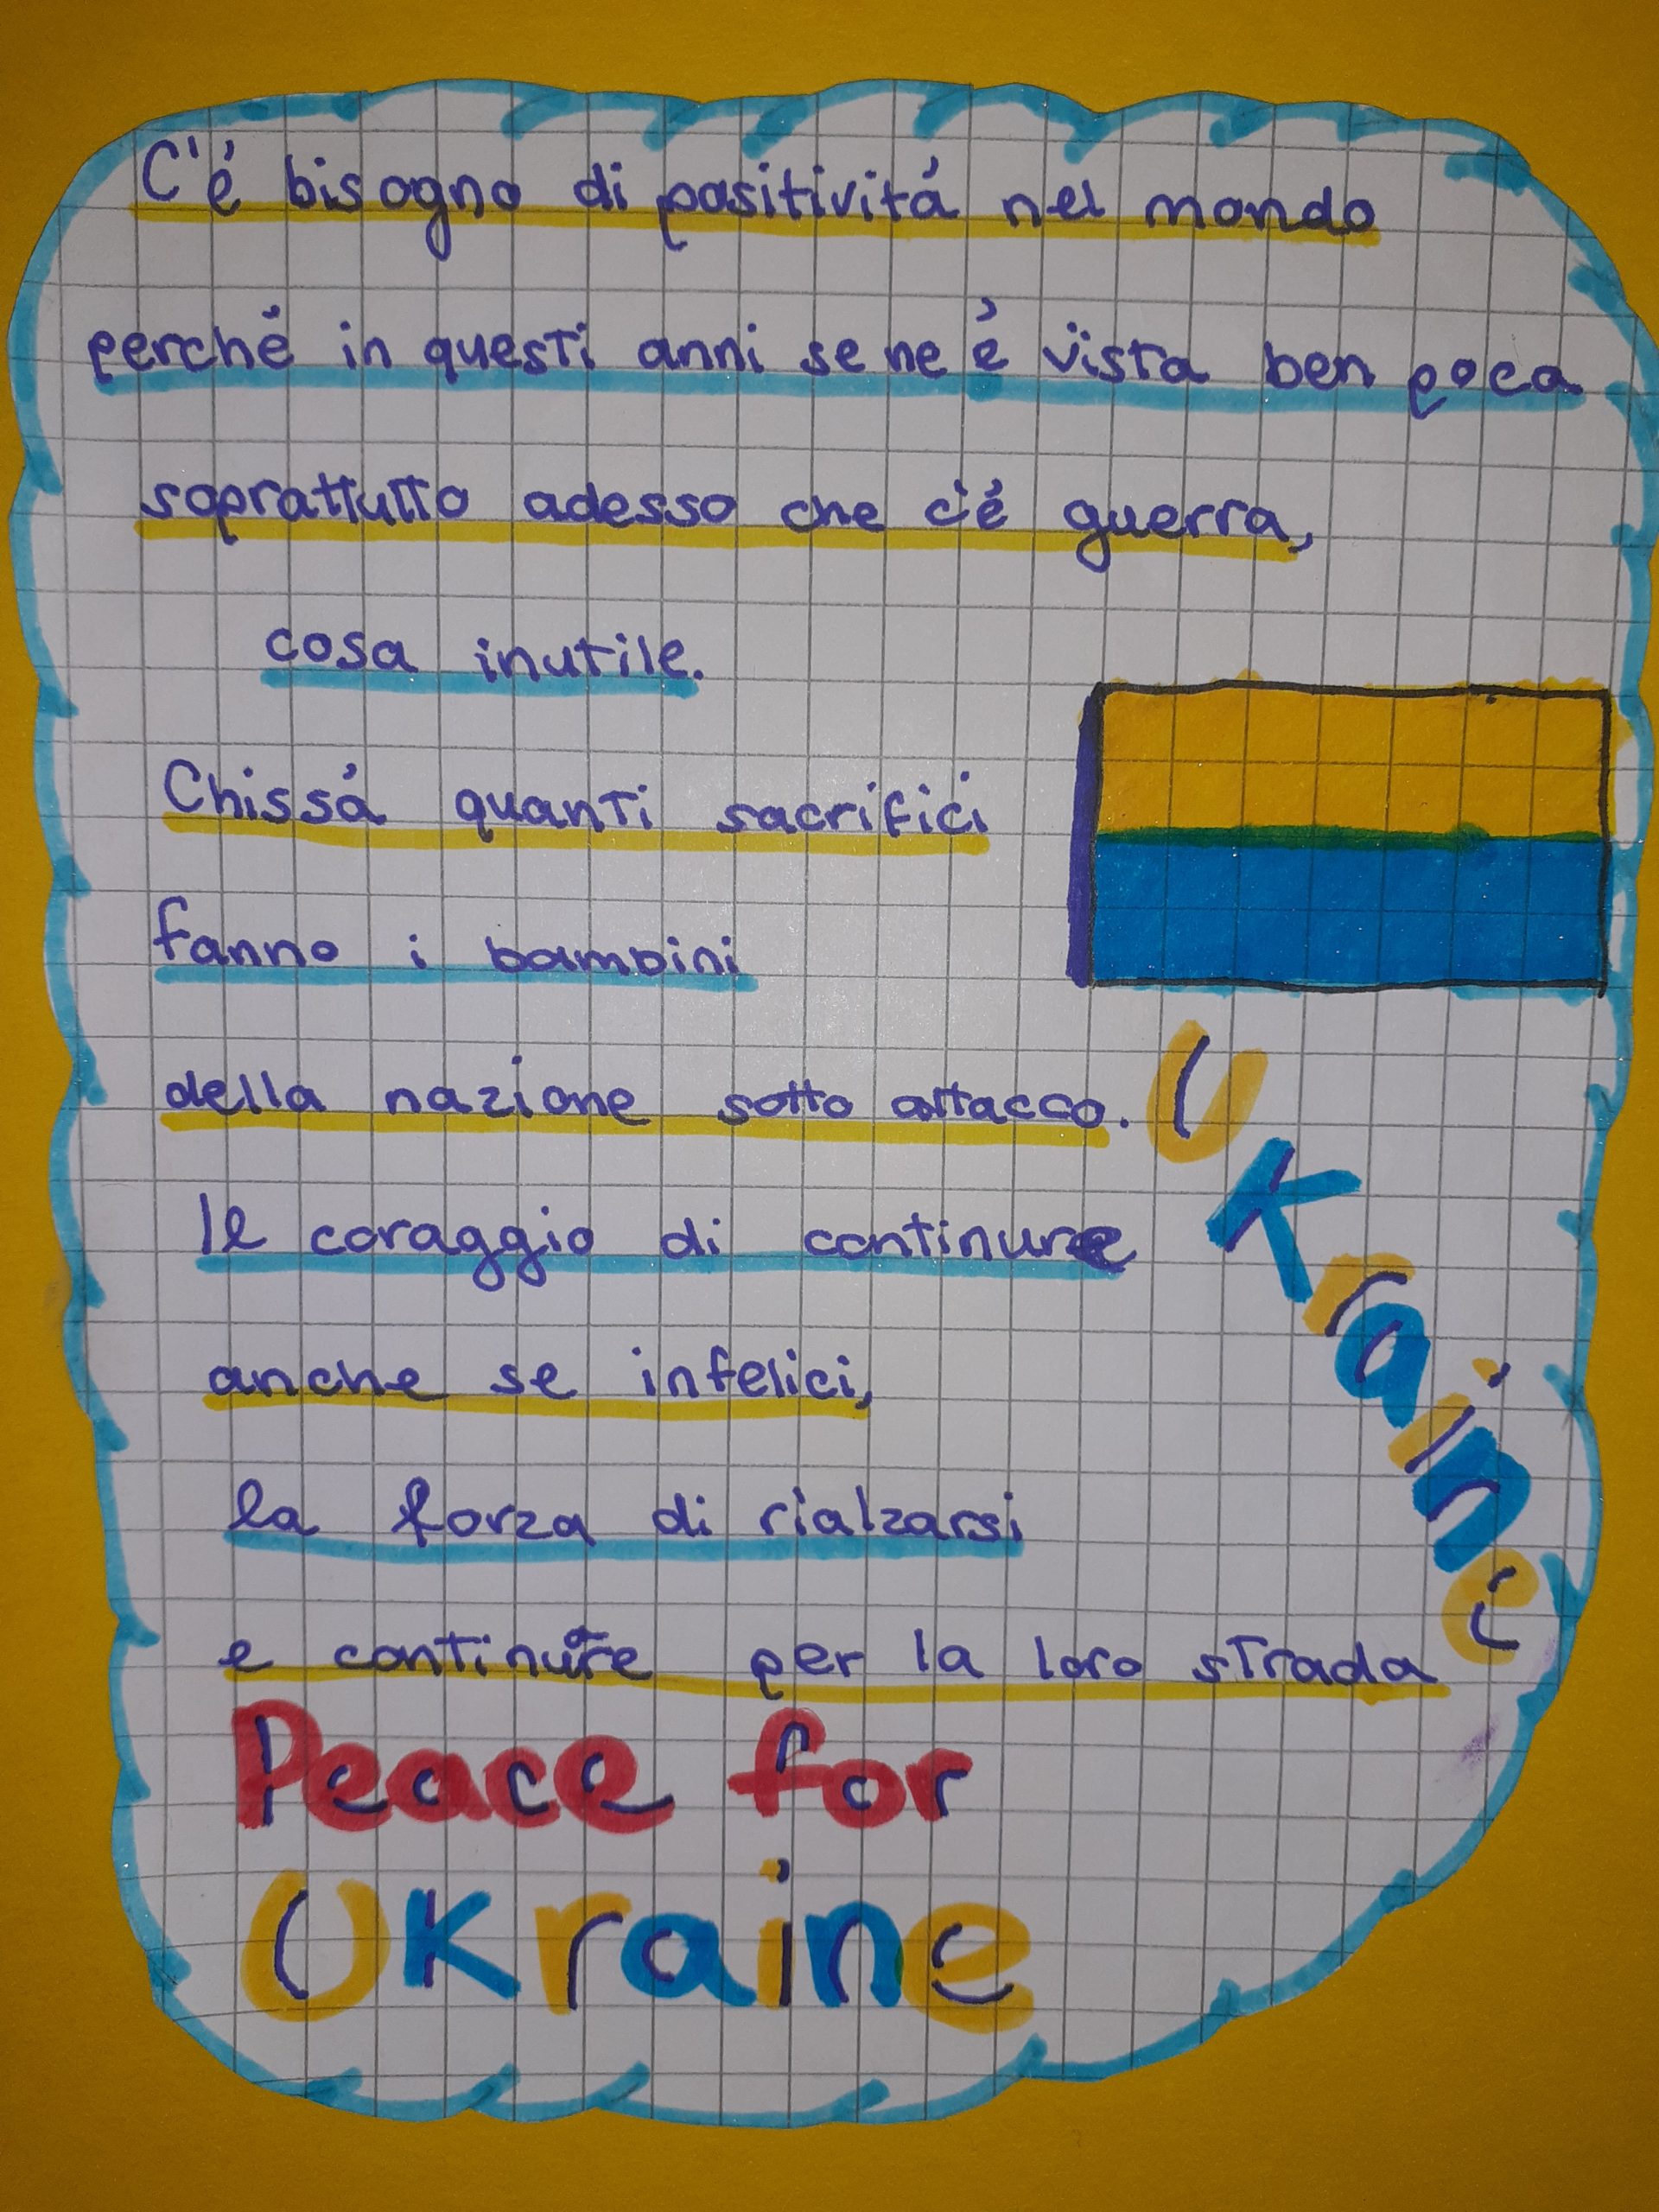 C'é bisogno di positivitá nel mondo
perché in questi anni se ne è vista ben poca
soprattutto adesso che c'é guerra,
cosa inutile.
Chissá quanti sacrifici
fanno i bambini
della nazione sotto attacco.
Il coraggio di continure
anche se infelici,
la forza di rialzarsi
e continuare per la loro strada
Ukraine
Peace for
Ukraine